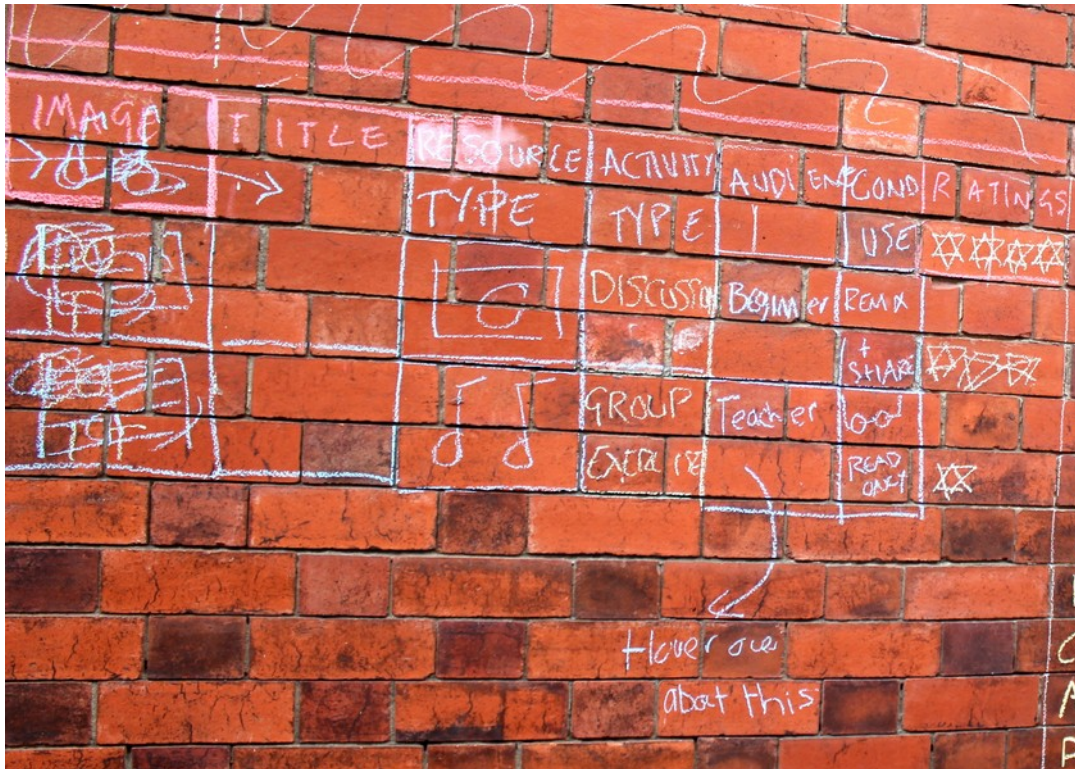 IMAGE TITLE RESOURCE ACTIVITY AUDIEN COND RATINGS
TYPE TYPE USE
DISCUSSION Beginner REMIX
+
SHARE
GROUP Teacher
EXERCISE READ
ONLY
Hover over
about this